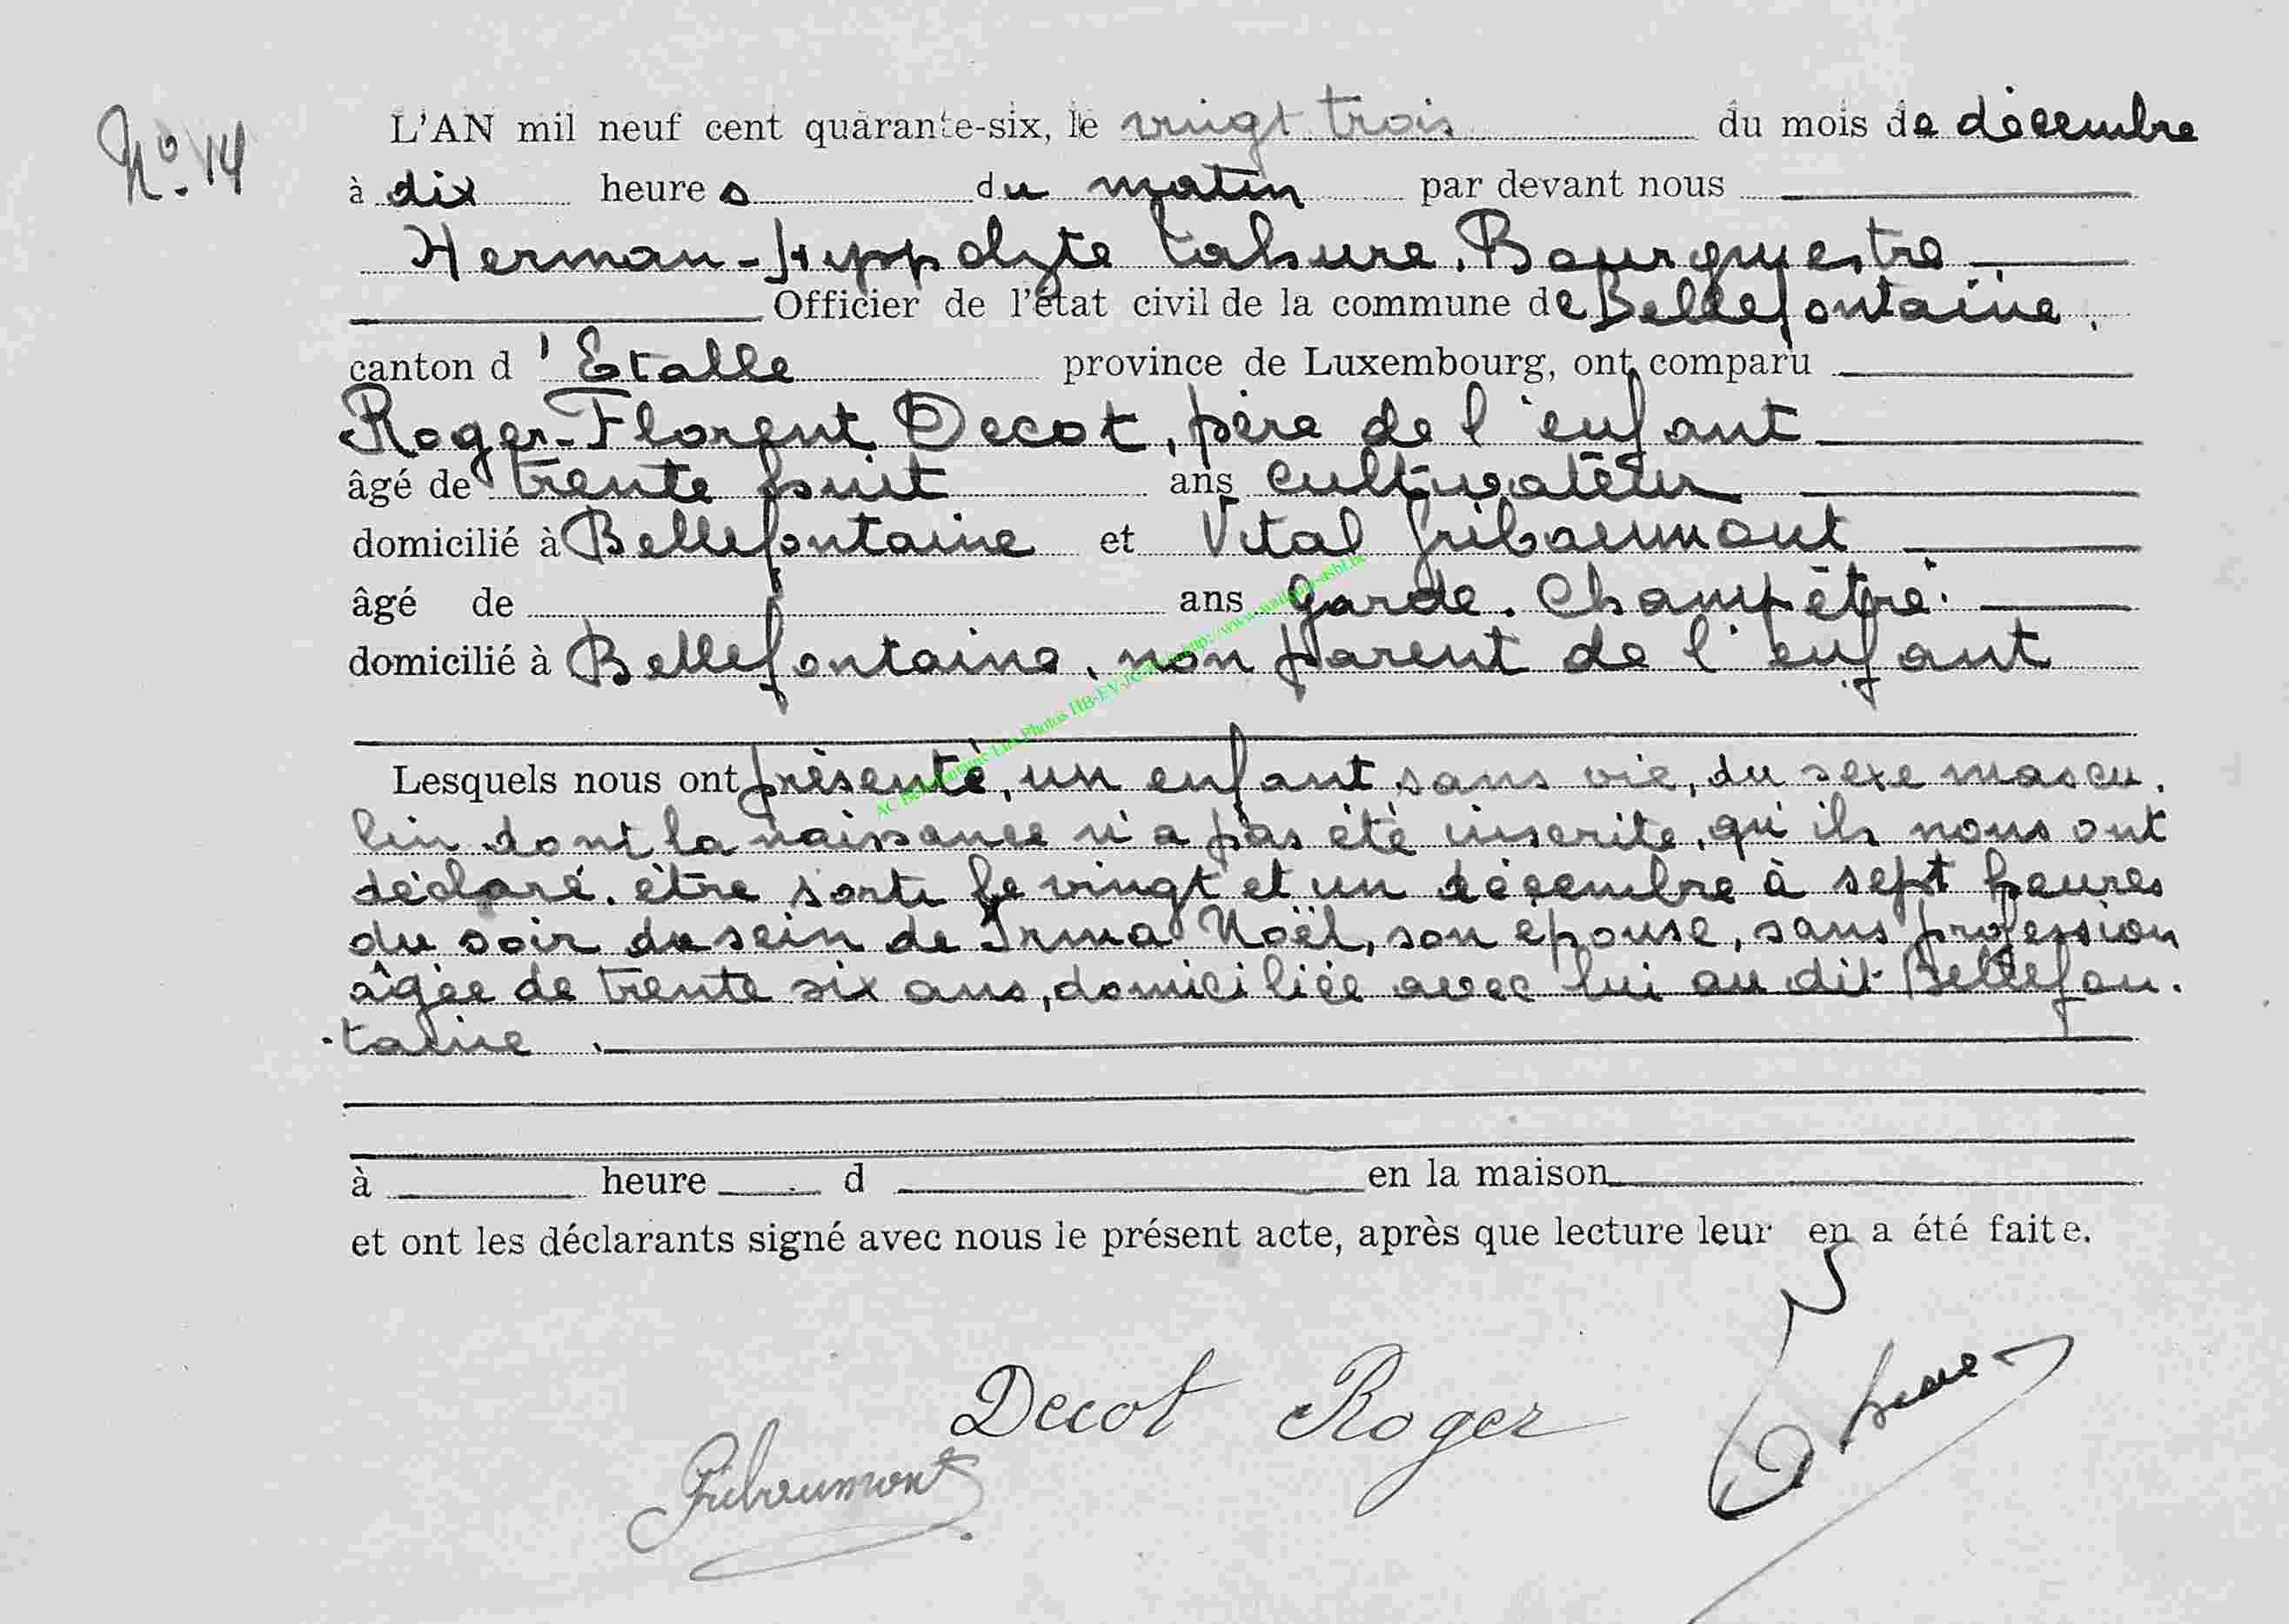 N° 14
L'AN mil neuf cent quarante-six, le vingt trois du mois de décembre
à dix heures du matin par devant nous
Herman-Hippolyte Lahure, Bourgmestre
Officier de l'état civil de la commune de Bellefontaine,
canton d'Etalle province de Luxembourg, ont comparu
Roger-Florent Decot, père de l'enfant
âgé de trente huit ans cultivateur
domicilié à Bellefontaine et Vital Fribaumont
âgé de ans garde. Champêtre.
domicilié à Bellefontaine, non parent de l'enfant
Lesquels nous ont présenté, un enfant sans vie, du sexe mascu.
lin dont la naissance n'a pas été inscrite, qu'ils nous ont
déclaré. être sorti le vingt et un décembre à sept heures
du soir du sein de Irma Noël, son épouse, sans profession
âgée de trente six ans, domiciliée avec lui au dit Bellefon.
.taine.
à heure d en la maison
et ont les déclarants signé avec nous le présent acte, après que lecture leur en a été faite.
Decot Roger
Fribaumont